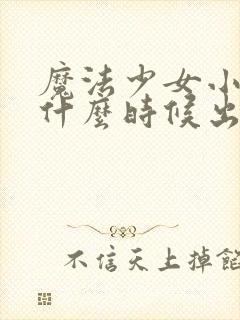 魔法少女小
什麼時候出
不信天上掉餡